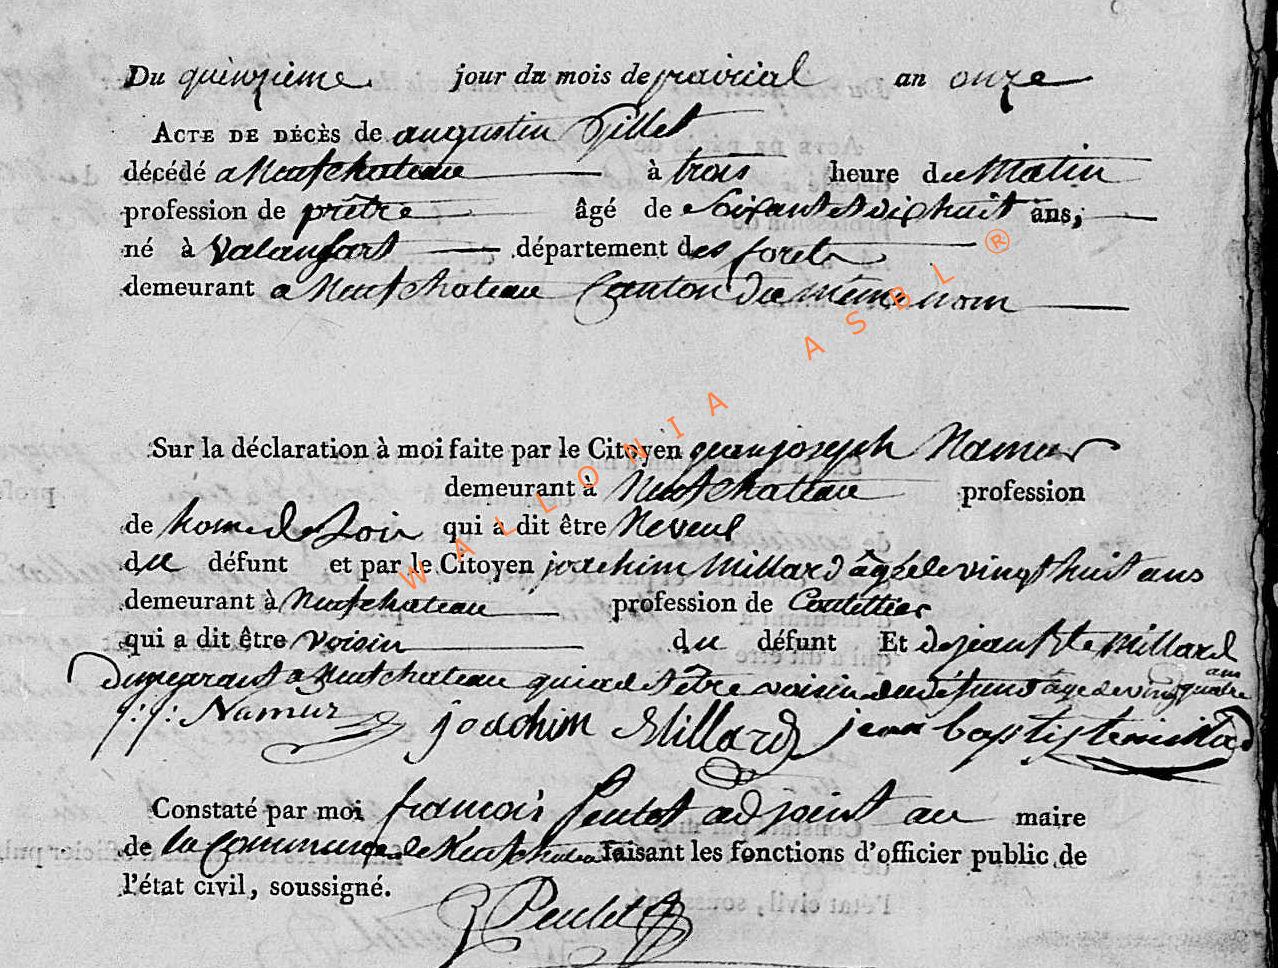 Du quinzieme jour du mois de prairial an onze
ACTE DE DÉCÈS de augustin Gillet
décédé a Neufchateau à trois heure du Matin
profession de prêtre âgé de Soixant et dix huit ans,
né à Valansart département des forets
demeurant a Neufchateau Canton du même nom
Sur la déclaration à moi faite par le Citoyen jean joseph Namur
demeurant à Neufchateau profession
de home de Loix qui a dit être Neveux
du défunt et par le Citoyen joachim Millard âgé de vingt huit ans
demeurant à Neufchateau profession de Coutellier
qui a dit être voisin du défunt Et de jean Bte Millard
Demeurant a Neufchateau qui a dit être voisin du défunt âgé de vingt quatre ans
j: j: Namur joachim Millard jean baptiste millard
Constaté par moi francois adjoint au maire
de la Commune de Neufchateau faisant les fonctions d'officier public de
l'état civil, soussigné.
WALLONIA ASBL ®